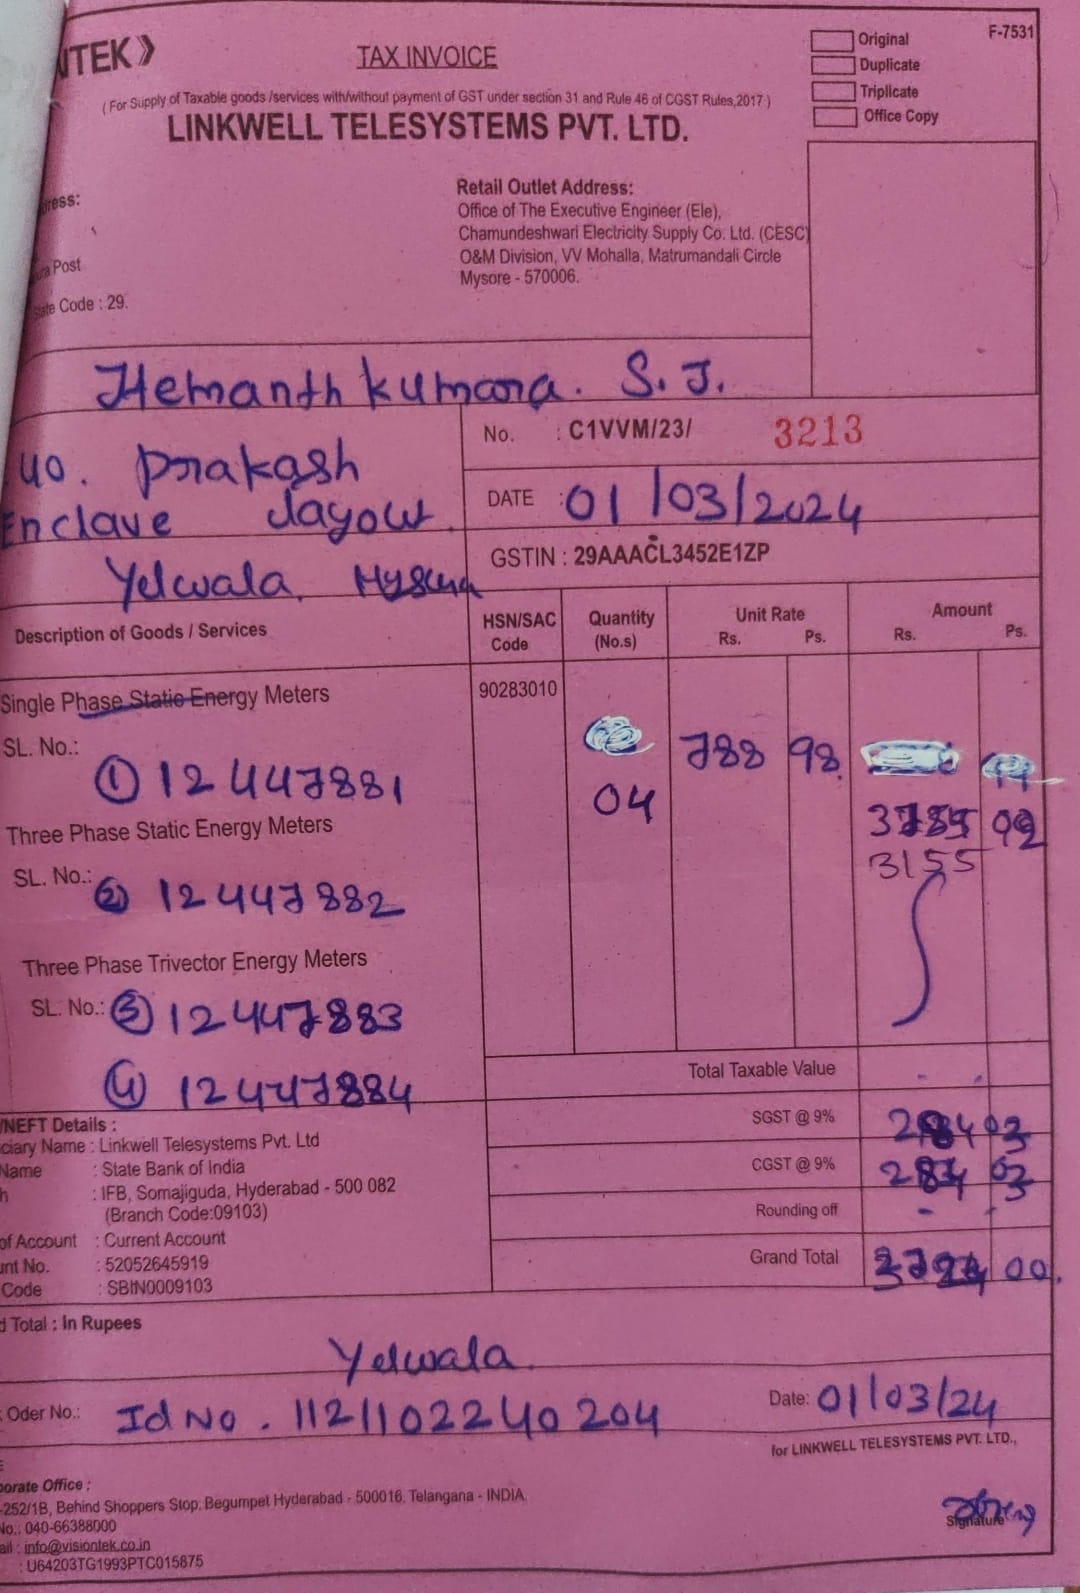 NTEK》
TAX INVOICE
Original
F-7531
Duplicate
Triplicate
Office Copy
( For Supply of Taxable goods /services with/without payment of GST under section 31 and Rule 46 of CGST Rules,2017 )
LINKWELL TELESYSTEMS PVT. LTD.
ress:
Retail Outlet Address:
Office of The Executive Engineer (Ele),
Chamundeshwari Electricity Supply Co. Ltd. (CESC)
O&M Division, VV Mohalla, Matrumandali Circle
Mysore - 570006.
Post
ate Code : 29.
Hemanth kumara. S. J.
No. : C1VVM/23/ 3213
40. prakash
Enclave Layout.
DATE : 01/03/2024
GSTIN : 29AAACL3452E1ZP
Yelwala, Mysuru
Description of Goods / Services
HSN/SAC Code
Quantity (No.s)
Unit Rate Rs. Ps.
Amount Rs. Ps.
Single Phase Static Energy Meters
90283010
SL. No.:
788 98
① 12447881
04
Three Phase Static Energy Meters
3155
SL. No.: ② 12447882
Three Phase Trivector Energy Meters
SL. No.: ③ 12447883
④ 12447884
Total Taxable Value
/NEFT Details :
SGST @ 9%
ciary Name : Linkwell Telesystems Pvt. Ltd
Name : State Bank of India
CGST @ 9%
h : IFB, Somajiguda, Hyderabad - 500 082
(Branch Code:09103)
Rounding off
of Account : Current Account
unt No. : 52052645919
Grand Total 00.
Code : SBIN0009103
d Total : In Rupees
Yelwala.
Oder No.: Id No. 1121102240204
Date: 01/03/24
for LINKWELL TELESYSTEMS PVT. LTD.,
porate Office :
-252/1B, Behind Shoppers Stop, Begumpet Hyderabad - 500016. Telangana - INDIA.
No.: 040-66388000
Signature
ail : info@visiontek.co.in
: U64203TG1993PTC015875